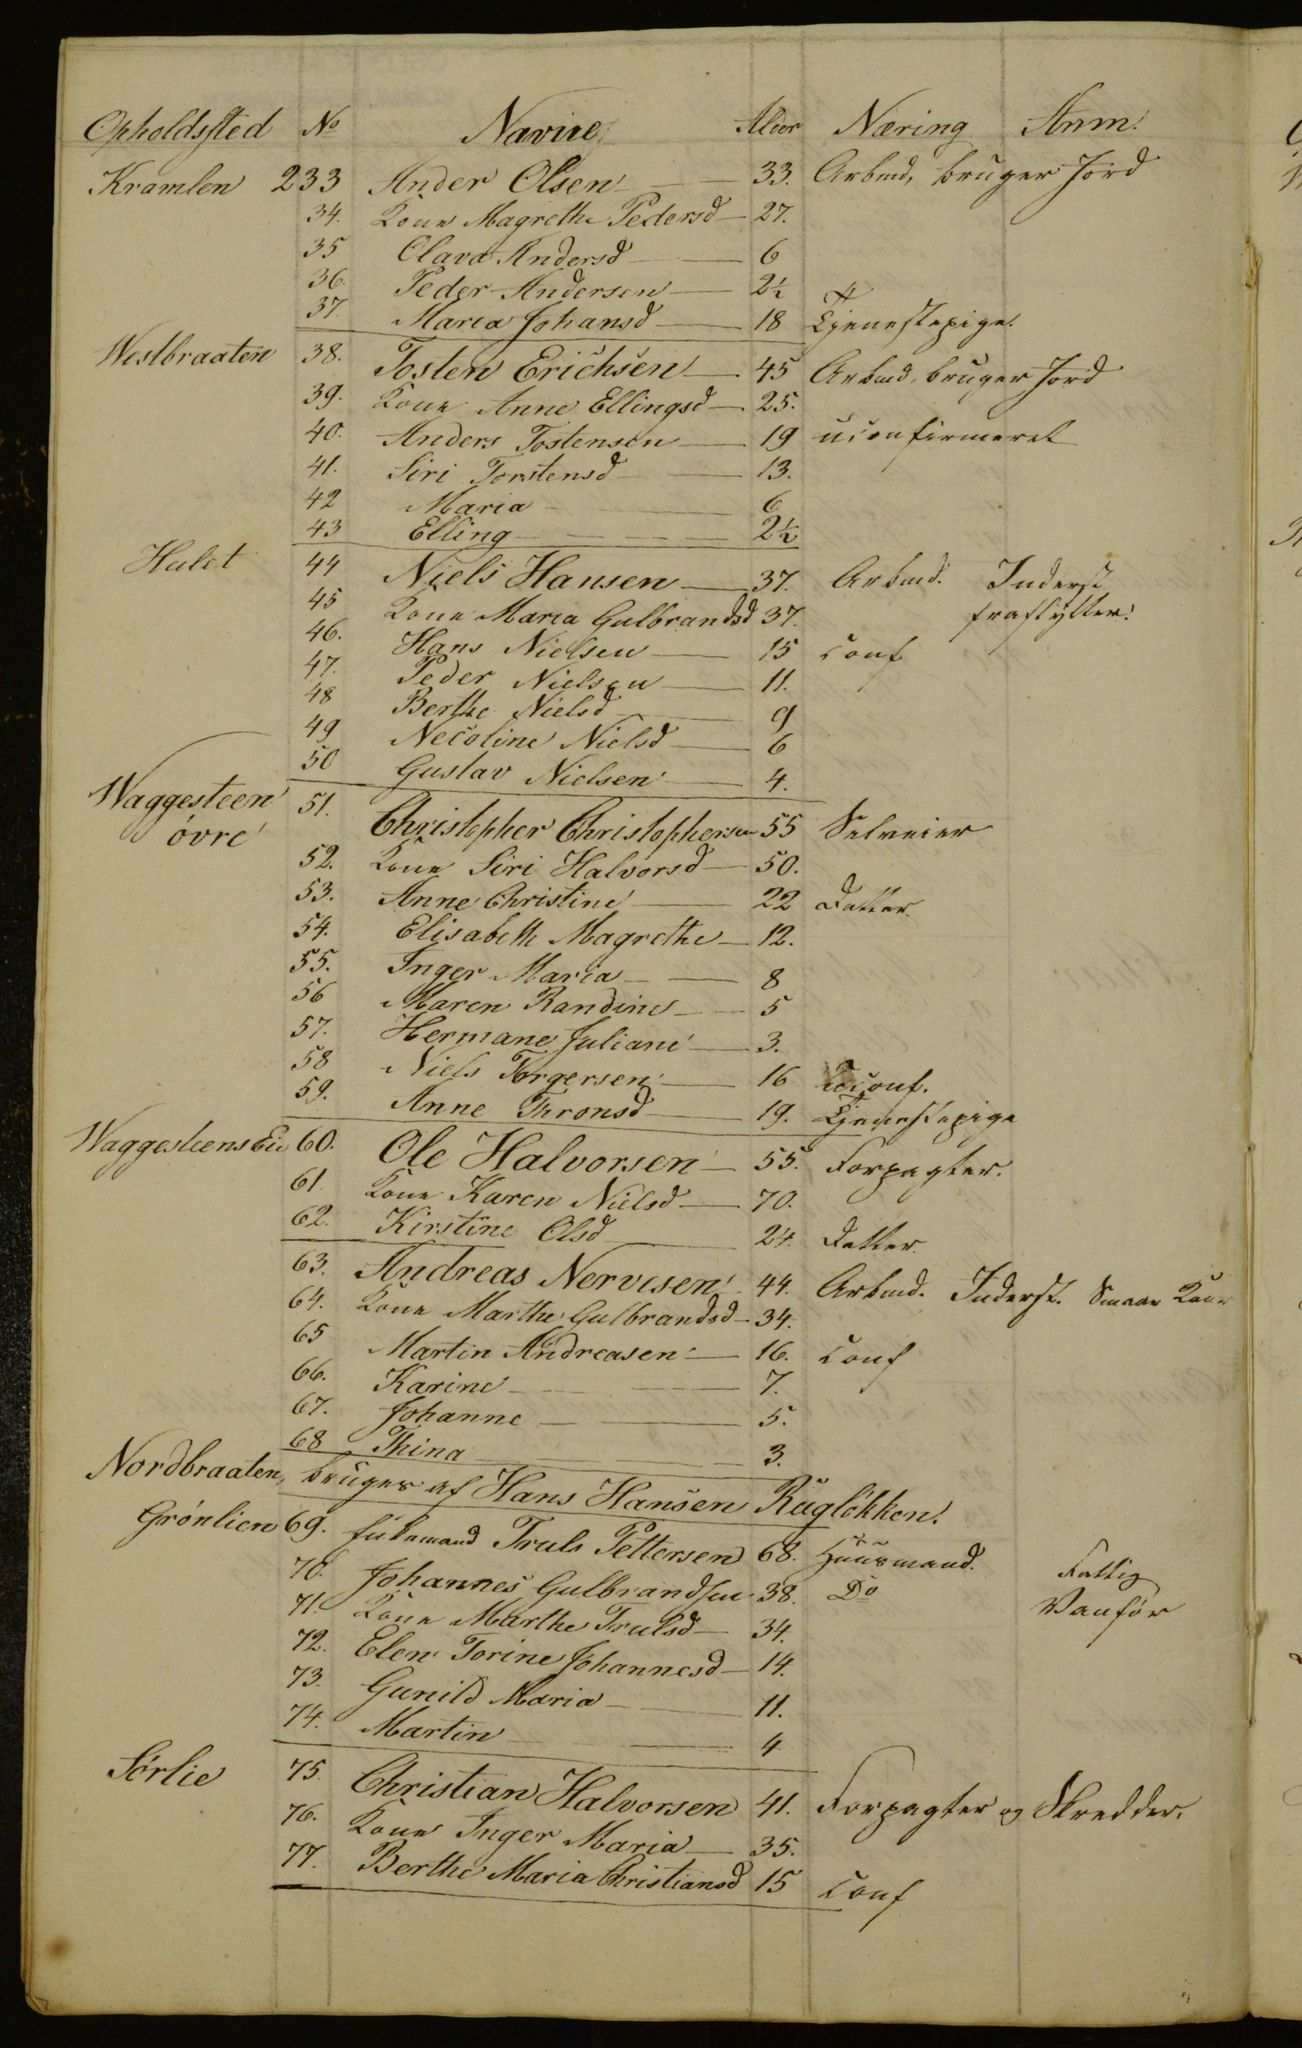 Opholdssted No Navne Alder Næring Anm:
Kramlen 233 Ander Olsen 33. Arbmd, bruger Jord
34. Kone Magrethe Pedersd 27.
35 Olava Andersd 6
36. Peder Andersen 2½
37. Maria Johansd 18 Tjenestepige.
Westbraaten 38. Tosten Erichsen 45 Arbmd, bruger Jord
39. Kone Anne Ellingsd 25.
40. Anders Tostensen 19 uconfirmeret
41. Siri Torstensd 13.
42 Maria 6
43 Elling 2½
Hulet 44 Niels Hansen 37. Arbmd. Inderst
45 Kone Maria Gulbrandsd 37. fraflytter!
46. Hans Nielsen 15 Conf
47. Peder Nielsen 11.
48 Berthe Nielsd 9
49 Necoline Nielsd 6
50 Gustav Nielsen 4.
Waggesteen 51. Christopher Christophersen 55 Selveier
øvre
52. Kone Siri Halvorsd 50.
53. Anne Christine 22 Datter.
54. Elisabeth Magrethe 12.
55. Inger Maria 8
56 Maren Randine 5
57. Hermane Juliane 3.
58 Niels Torgersen 16 Uconf.
59. Anne Thronsd 19. Tjenestepige
Waggesteens Eie 60. Ole Halvorsen 55. Forpagter.
61. Kone Karen Nielsd 70.
62. Kirstine Olsd 24. Datter.
63. Andreas Nervesen 44. Arbmd. Inderst. Smaae Kaar
64. Kone Marthe Gulbrandsd 34.
65 Martin Andreasen 16. Conf
66. Karine 7.
67. Johanne 5.
68 Thina 3.
Nordbraaten, bruges af Hans Hansen Rugløkken.
Grønlien 69. Enkemand Truls Pettersen 68. Huusmand. Fattig
70. Johannes Gulbrandsen 38. Do Vanfør
71. Kone Marthe Trulsd 34.
72. Elen Torine Johannesd 14.
73. Gunild Maria 11.
74. Martin 4
Sørlie 75. Christian Halvorsen 41. Forpagter og Skredder.
76. Kone Inger Maria 35.
77. Berthe Maria Christiansd 15 Conf